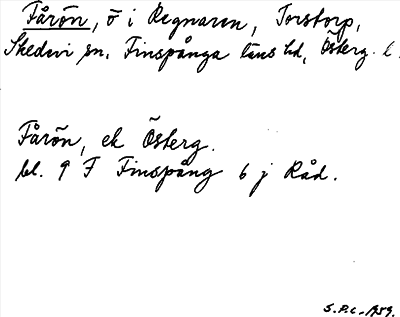 Fårön, ö i Regnaren, Torstorp,
Skedevi sn, Finspånga läns hd, Österg. l.
Fårön, ek Österg.
bl. 9 F Finspång 6 j Råd.
S.P.C. 1959.